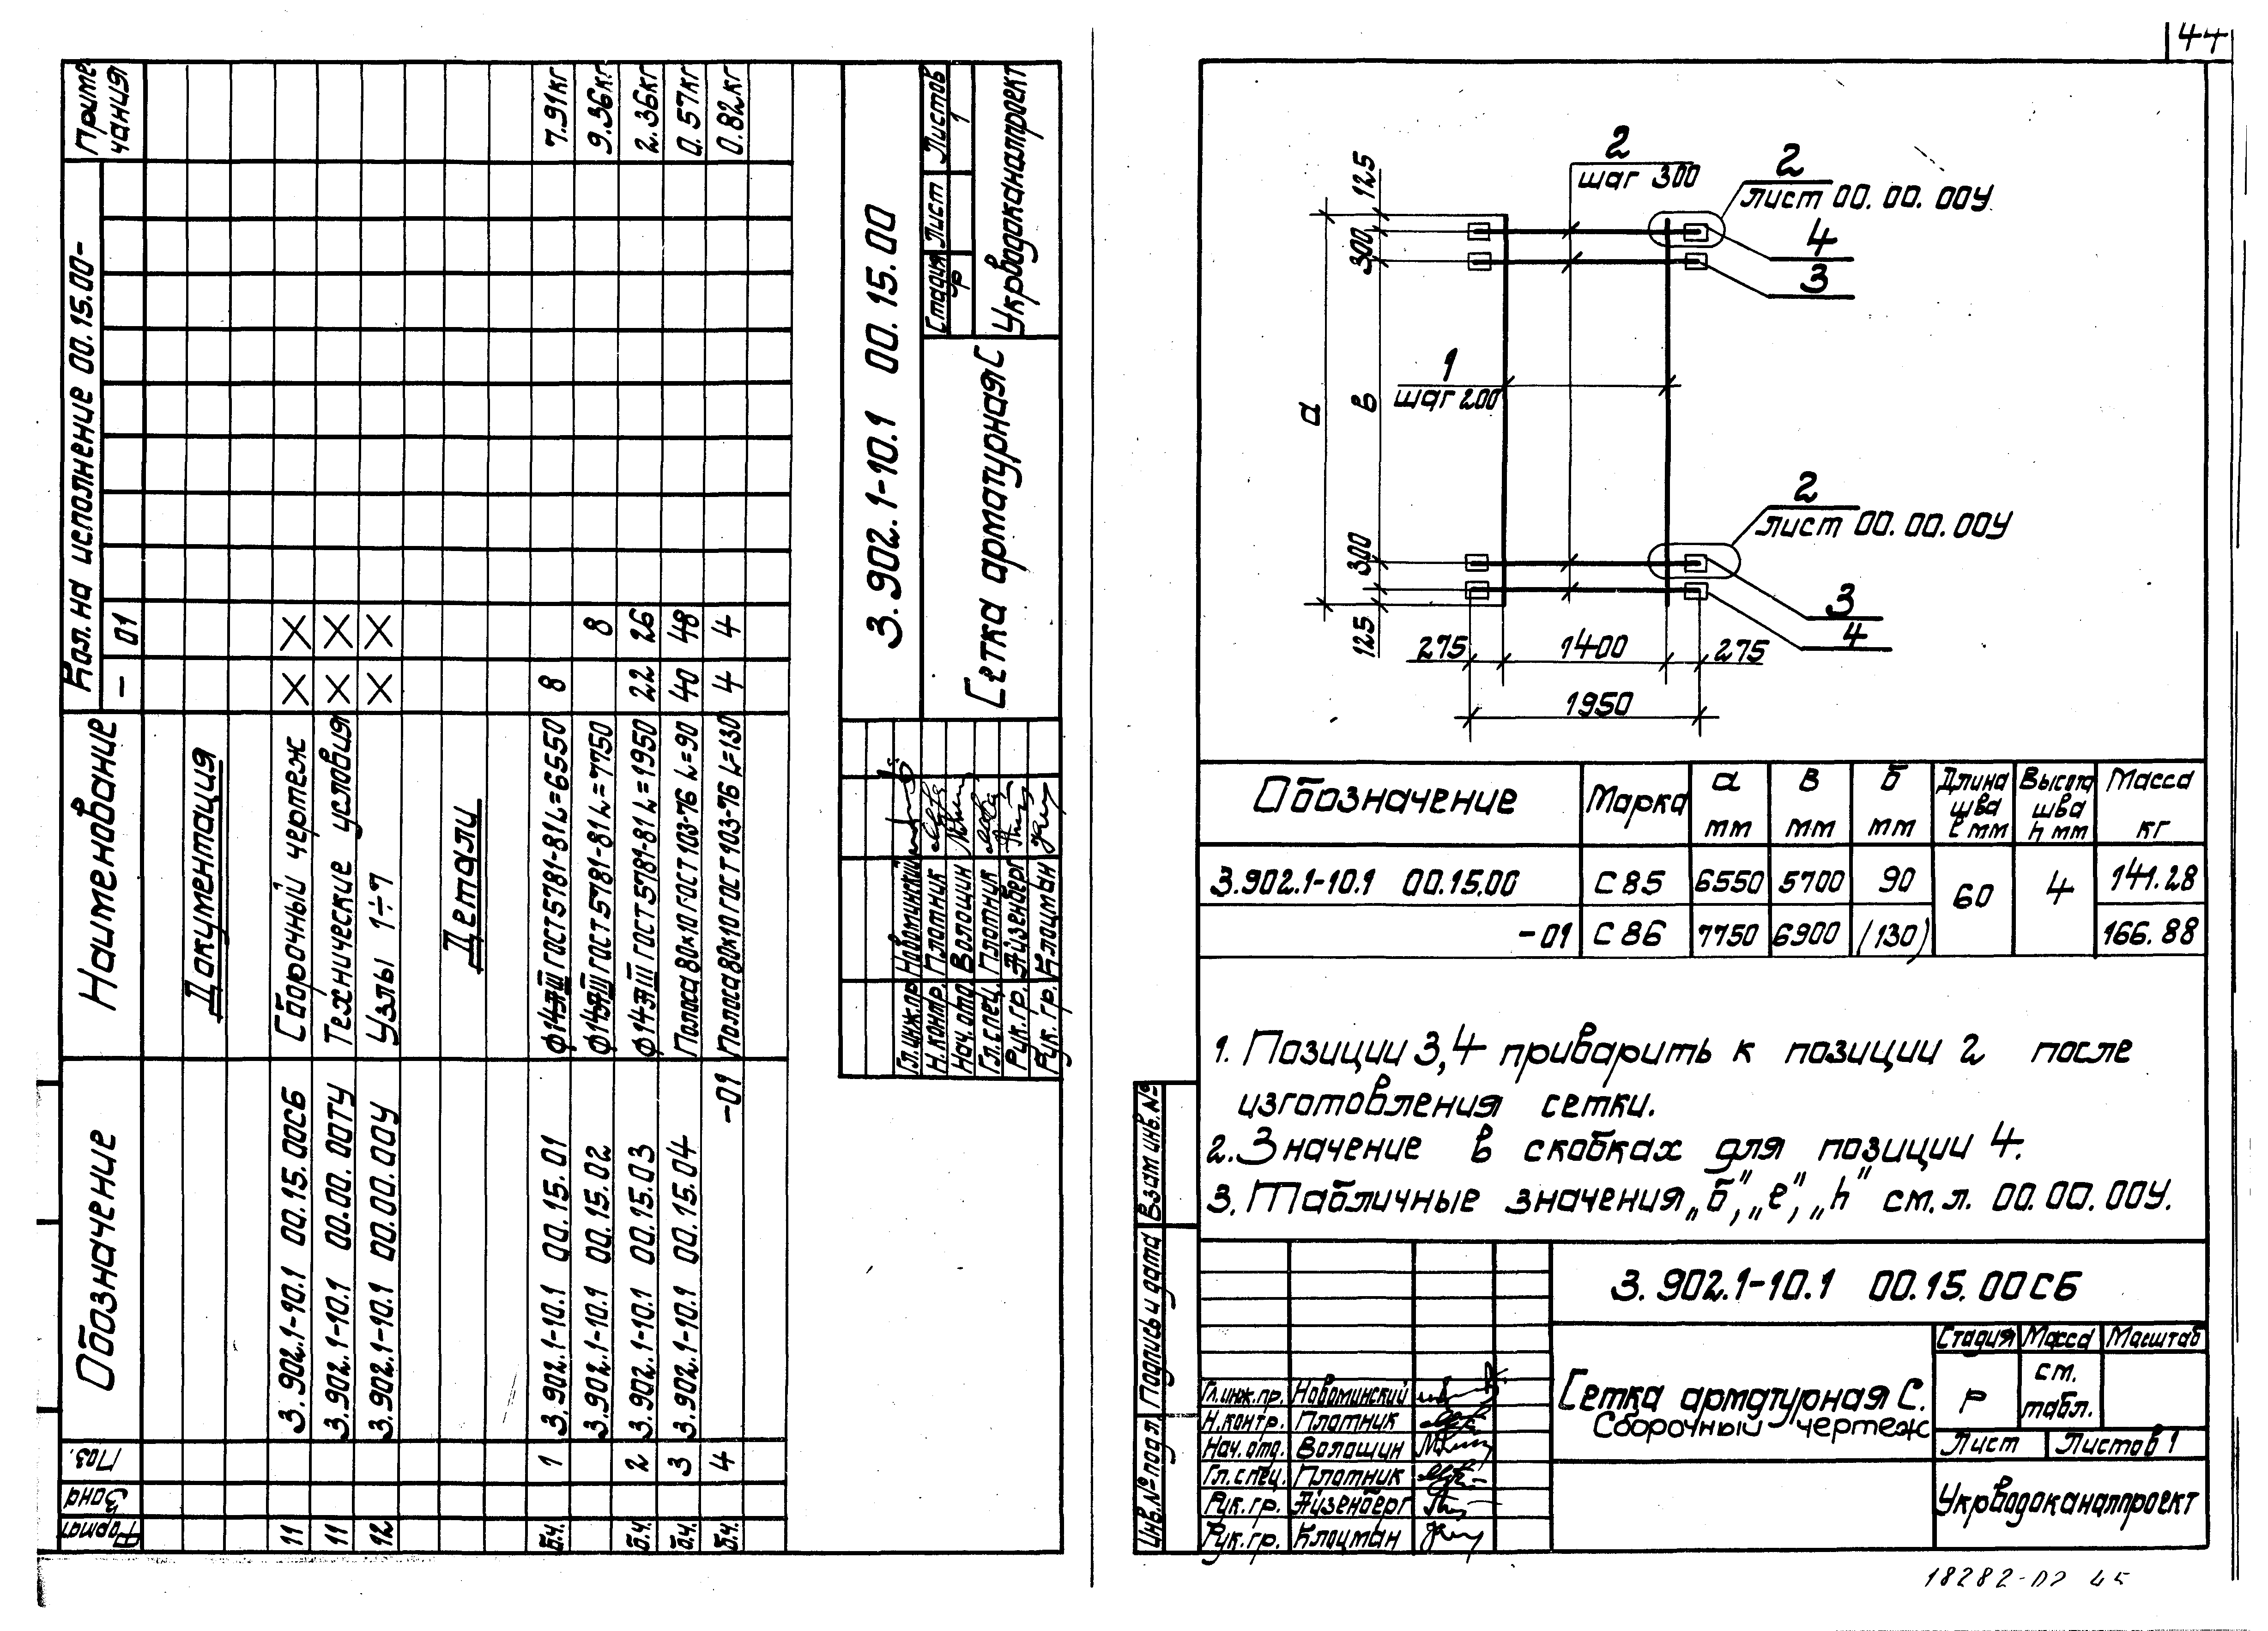 Формат Зона Поз. Обозначение Наименование Кол. на исполнение 00.15.00- Приме-
чания
— 01
Документация
11 3.902.1-10.1 00.15.00СБ Сборочный чертеж X X
11 3.902.1-10.1 00.00.00ТУ Технические условия X X
12 3.902.1-10.1 00.00.00У Узлы 1÷7 X X
Детали
б.ч. 1 3.902.1-10.1 00.15.01 ф14АIII ГОСТ5781-81 L=6550 8 7.91кг
3.902.1-10.1 00.15.02 ф14АIII ГОСТ5781-81 L=7750 8 9.36кг
б.ч. 2 3.902.1-10.1 00.15.03 ф14АIII ГОСТ5781-81 L=1950 22 26 2.36кг
б.ч. 3 3.902.1-10.1 00.15.04 Полоса 80×10 ГОСТ103-76 L=90 40 48 0.57кг
б.ч. 4 -01 Полоса 80×10 ГОСТ103-76 L=130 4 4 0.82кг
3.902.1-10.1 00.15.00
Гл.инж.пр. Новоминский
Н.контр. Плотник
Нач.отд. Волошин
Гл.спец. Плотник
Рук.гр. Айзенберг
Рук.гр. Клоцман
Сетка арматурная С
Стадия Лист Листов
Р 1
Укрводоканалпроект
44
2
шаг 300
2
лист 00.00.00У
4
3
1
шаг 200
2
лист 00.00.00У
3
4
125
300
а
в
300
125
275 1400 275
1950
Обозначение Марка а мм в мм б мм Длина шва ℓ мм Высота шва h мм Масса кг
3.902.1-10.1 00.15.00 С85 6550 5700 90 60 4 141.28
-01 С86 7750 6900 (130) 166.88
1. Позиции 3,4 приварить к позиции 2 после
изготовления сетки.
2. Значение в скобках для позиции 4.
3. Табличные значения „б", „ℓ", „h" см. л. 00.00.00У.
Инв.№ подл. Подпись и дата Взам инв.№
3.902.1-10.1 00.15.00СБ
Гл.инж.пр. Новоминский
Н.контр. Плотник
Нач.отд. Волошин
Гл.спец. Плотник
Рук.гр. Айзенберг
Рук.гр. Клоцман
Сетка арматурная С.
Сборочный чертеж
Стадия Масса Масштаб
Р см. табл.
Лист Листов 1
Укрводоканалпроект
18282-02 45